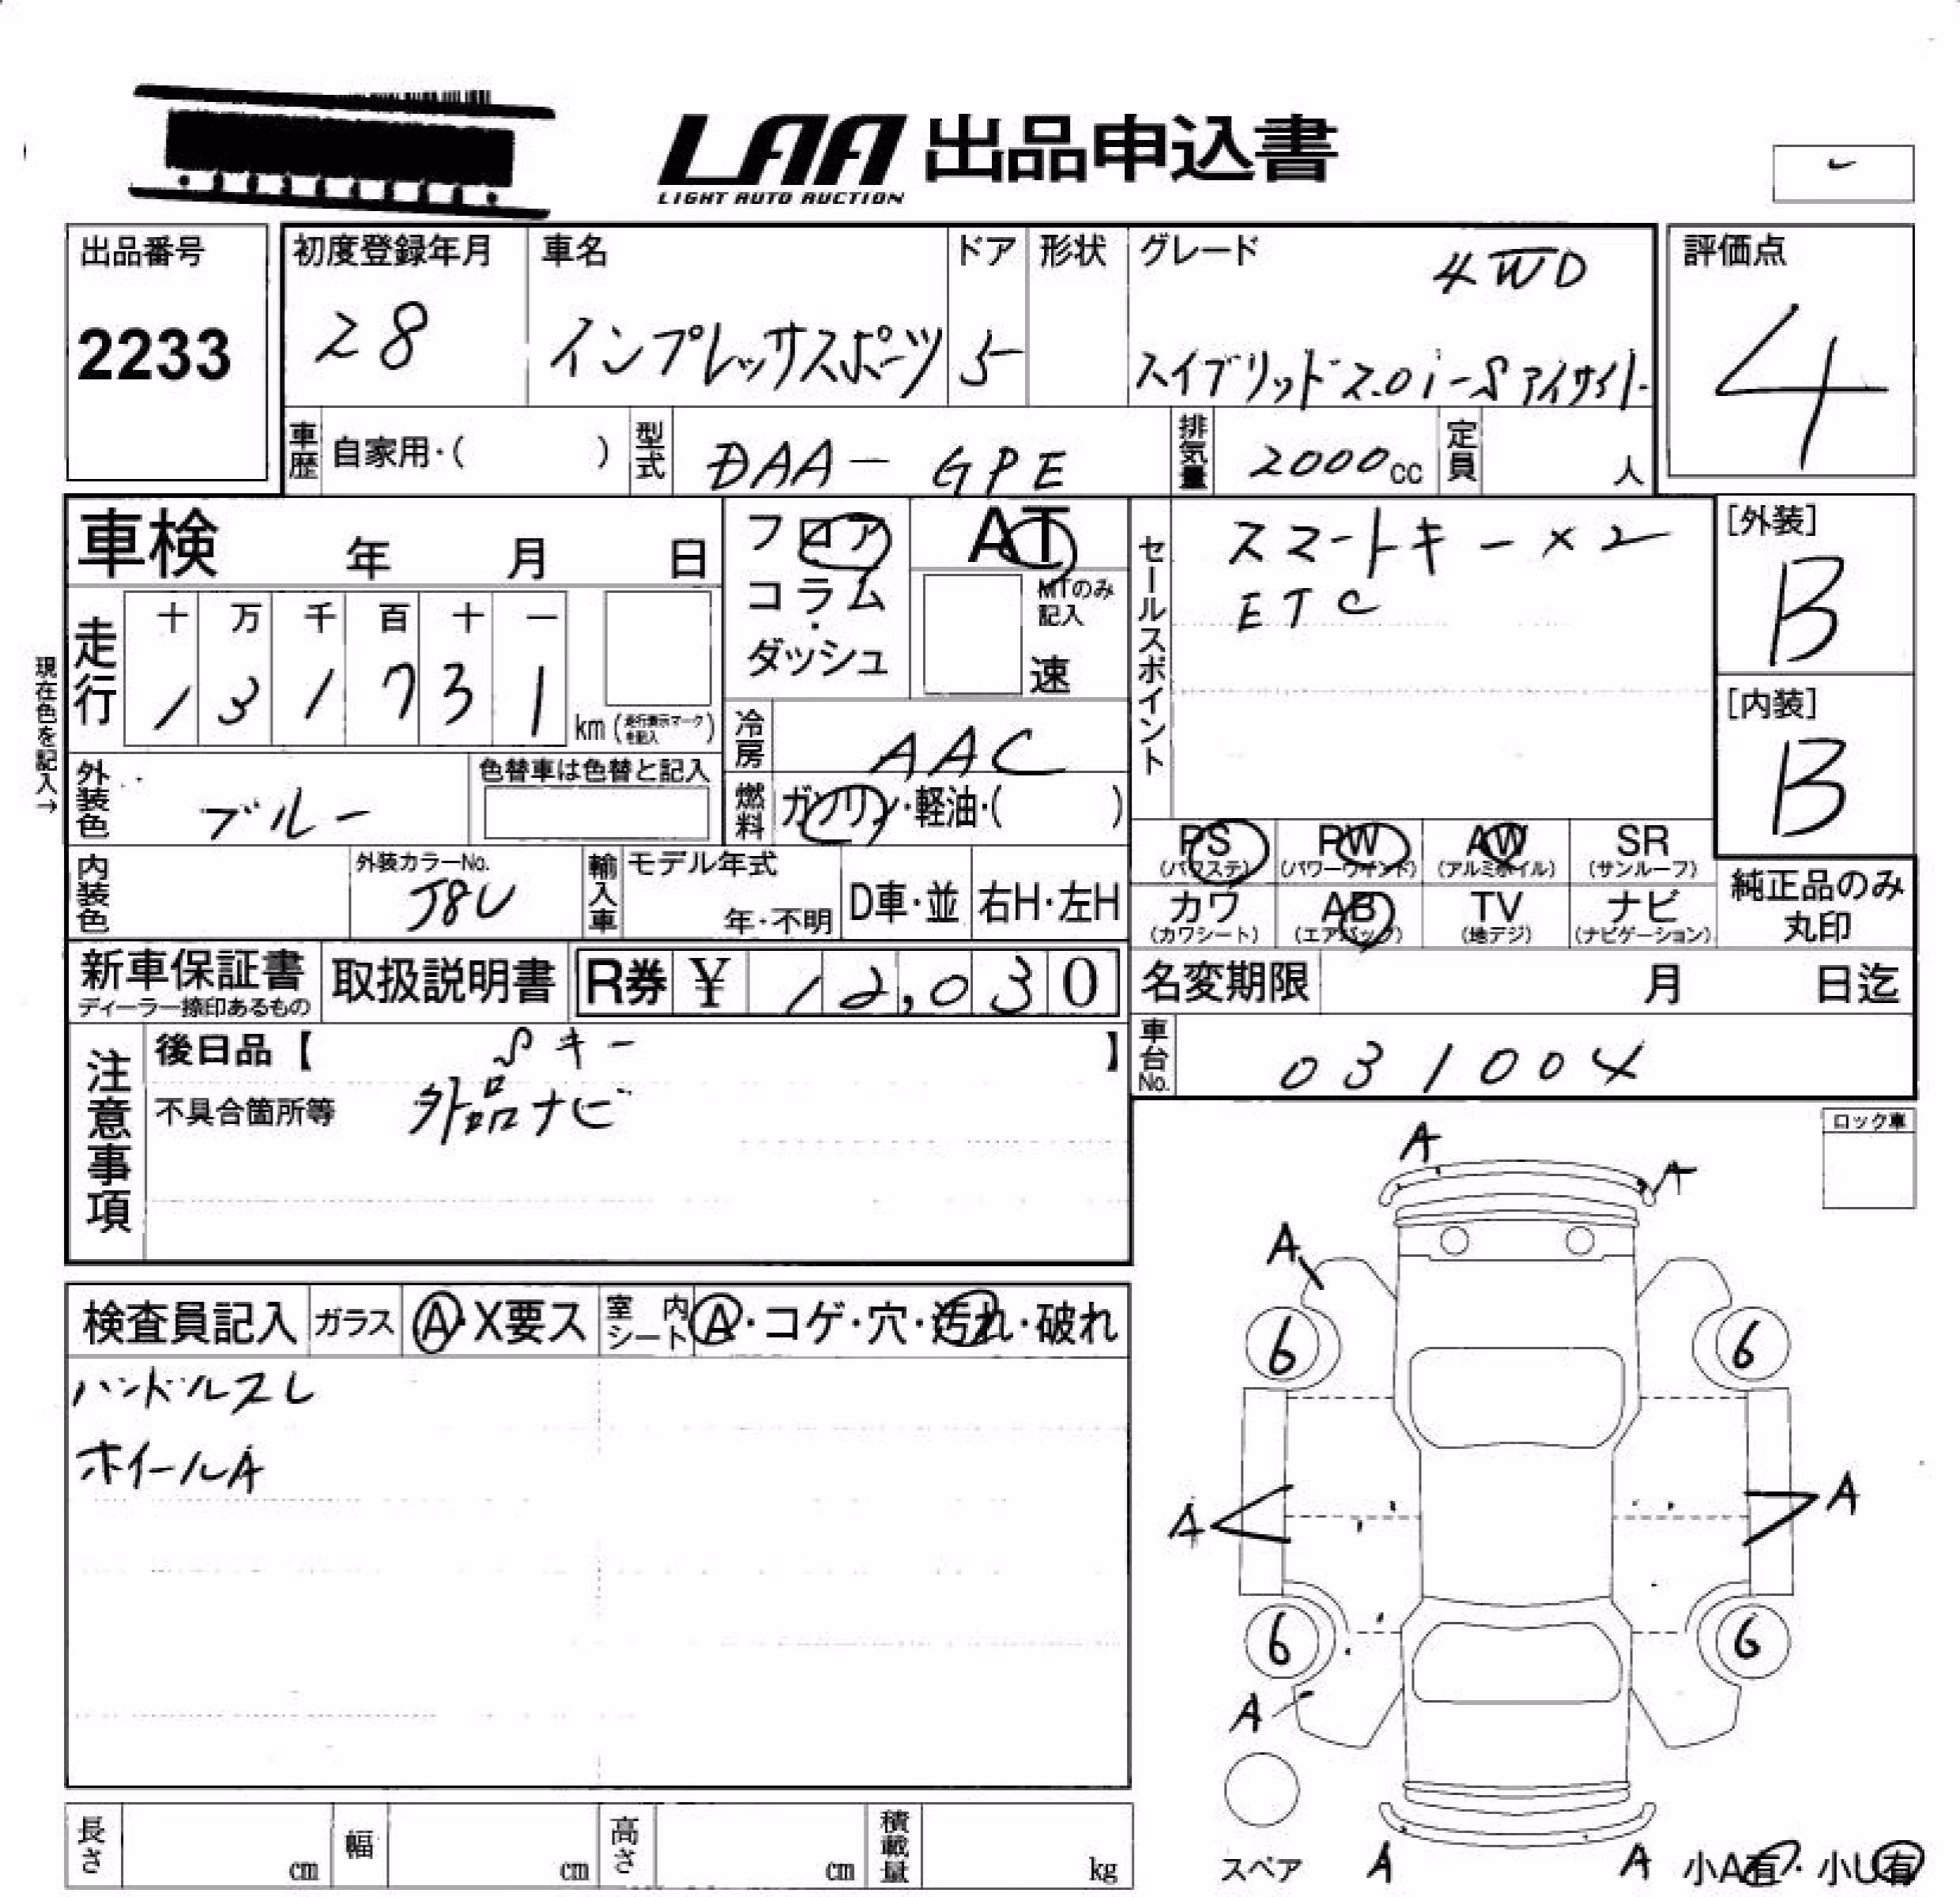 LAA 出品申込書
LIGHT AUTO AUCTION
出品番号
2233
初度登録年月
28
車名
インプレッサスポーツ
ドア
5
形状
グレード
4WD
スイブリッド2.0i-Sアイサイト
評価点
4
車歴 自家用・( )
型式 DAA-GPE
排気量 2000cc
定員 人
車検 年 月 日
フロア
コラム
・
ダッシュ
AT
MTのみ
記入
速
セールスポイント
スマートキー×2
ETC
[外装]
B
[内装]
B
現在色を記入→
走行
十 万 千 百 十 一
1 3 1 7 3 1
km (走行表示マークを記入)
冷房 AAC
燃料 ガソリン・軽油・( )
外装色 ブルー
色替車は色替と記入
内装色
外装カラーNo.
J8U
輸入車
モデル年式
年・不明
D車・並
右H・左H
PS
(パワステ)
PW
(パワーウインド)
AW
(アルミホイル)
SR
(サンルーフ)
カワ
(カワシート)
AB
(エアバッグ)
TV
(地デジ)
ナビ
(ナビゲーション)
純正品のみ
丸印
新車保証書
ディーラー捺印あるもの
取扱説明書
R券 ¥ 12,030
名変期限 月 日迄
車台No. 031004
注意事項
後日品【 Sキー 】
不具合箇所等 外品ナビ
ロック車
検査員記入
ガラス A・X要ス
室内シート A・コゲ・穴・汚れ・破れ
ハンドルスレ
ホイールA
A
A
A
6
6
A
A
6
6
A
スペア
A
A
小A有・小U有
長さ cm
幅 cm
高さ cm
積載量 kg